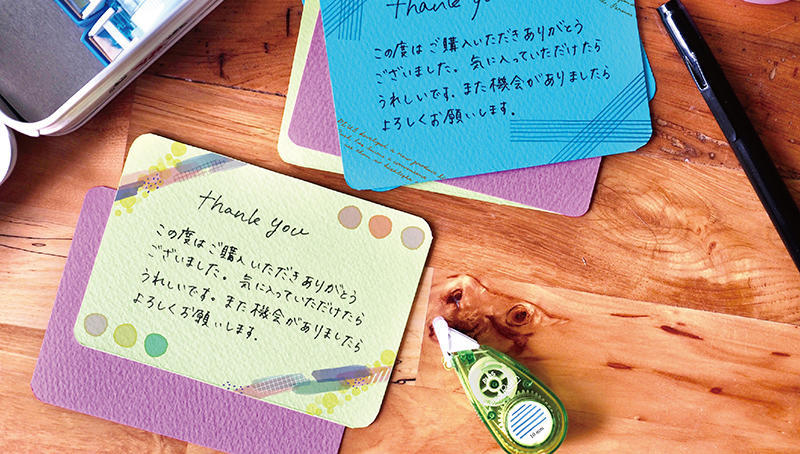 thank you
この度はご購入いただきありがとう
ございました。気に入っていただけたら
うれしいです。また機会がありましたら
よろしくお願いします。
thank you
この度はご購入いただきありがとう
ございました。気に入っていただけたら
うれしいです。また機会がありましたら
よろしくお願いします。
10 mm